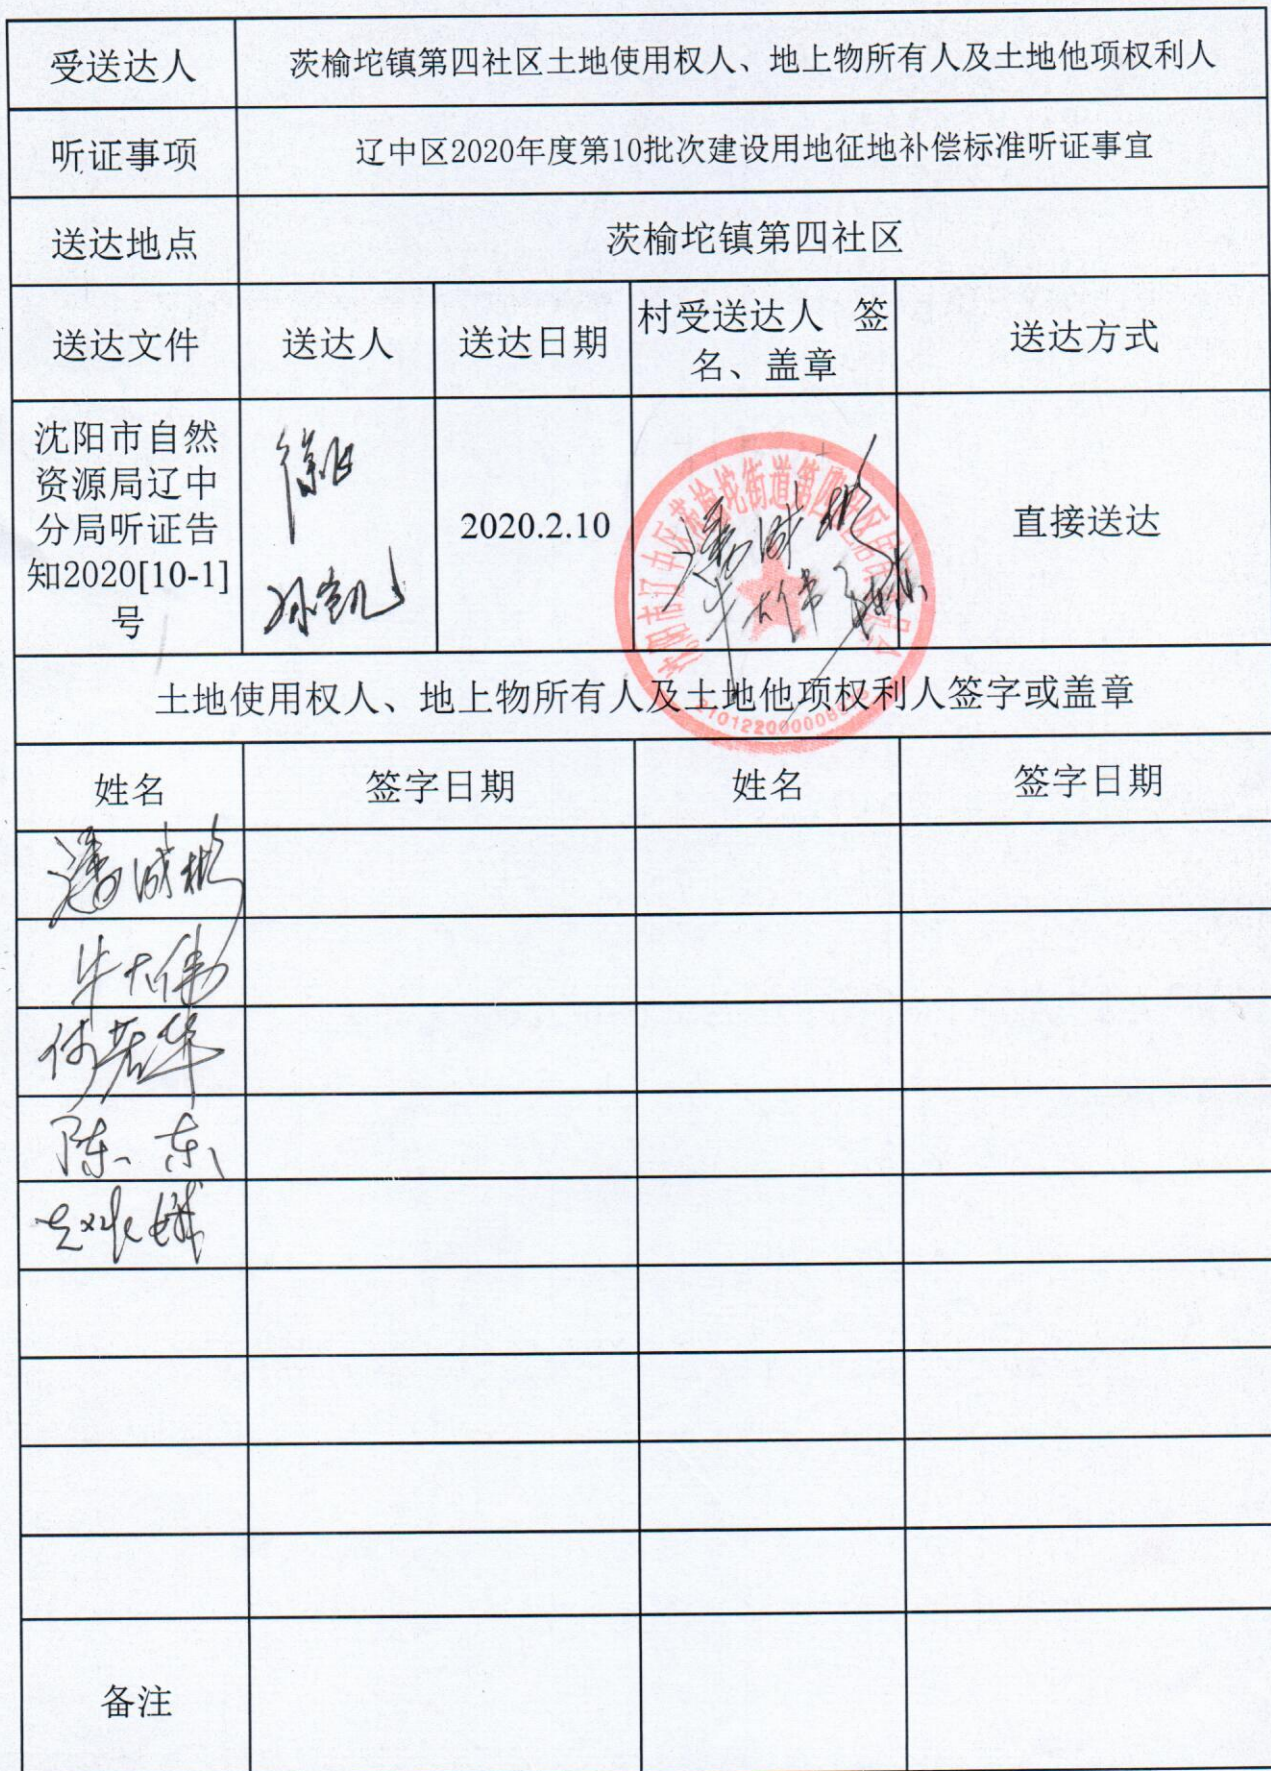 受送达人 茨榆坨镇第四社区土地使用权人、地上物所有人及土地他项权利人
听证事项 辽中区2020年度第10批次建设用地征地补偿标准听证事宜
送达地点 茨榆坨镇第四社区
送达文件 送达人 送达日期 村受送达人 签
名、盖章 送达方式
沈阳市自然
资源局辽中
分局听证告
知2020[10-1]
号
孙凯
2020.2.10
潘成彬
牛大伟
直接送达
土地使用权人、地上物所有人及土地他项权利人签字或盖章
姓名 签字日期 姓名 签字日期
潘成彬
牛大伟
陈东
备注